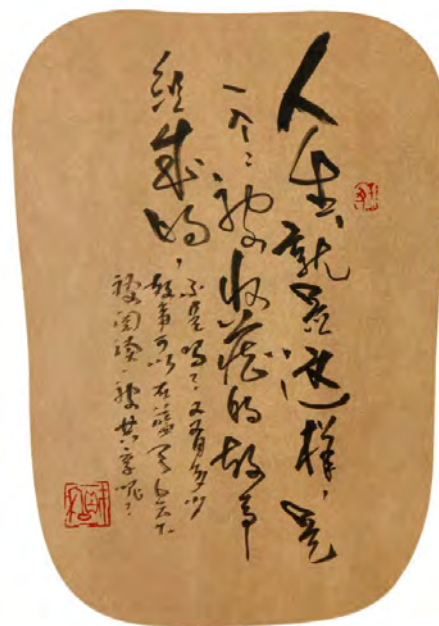 人生就是这样，是
一个个被收藏的故事
组成的，
不是吗？又有多少
故事可以在蓝天白云下
被阅读、被共享呢？